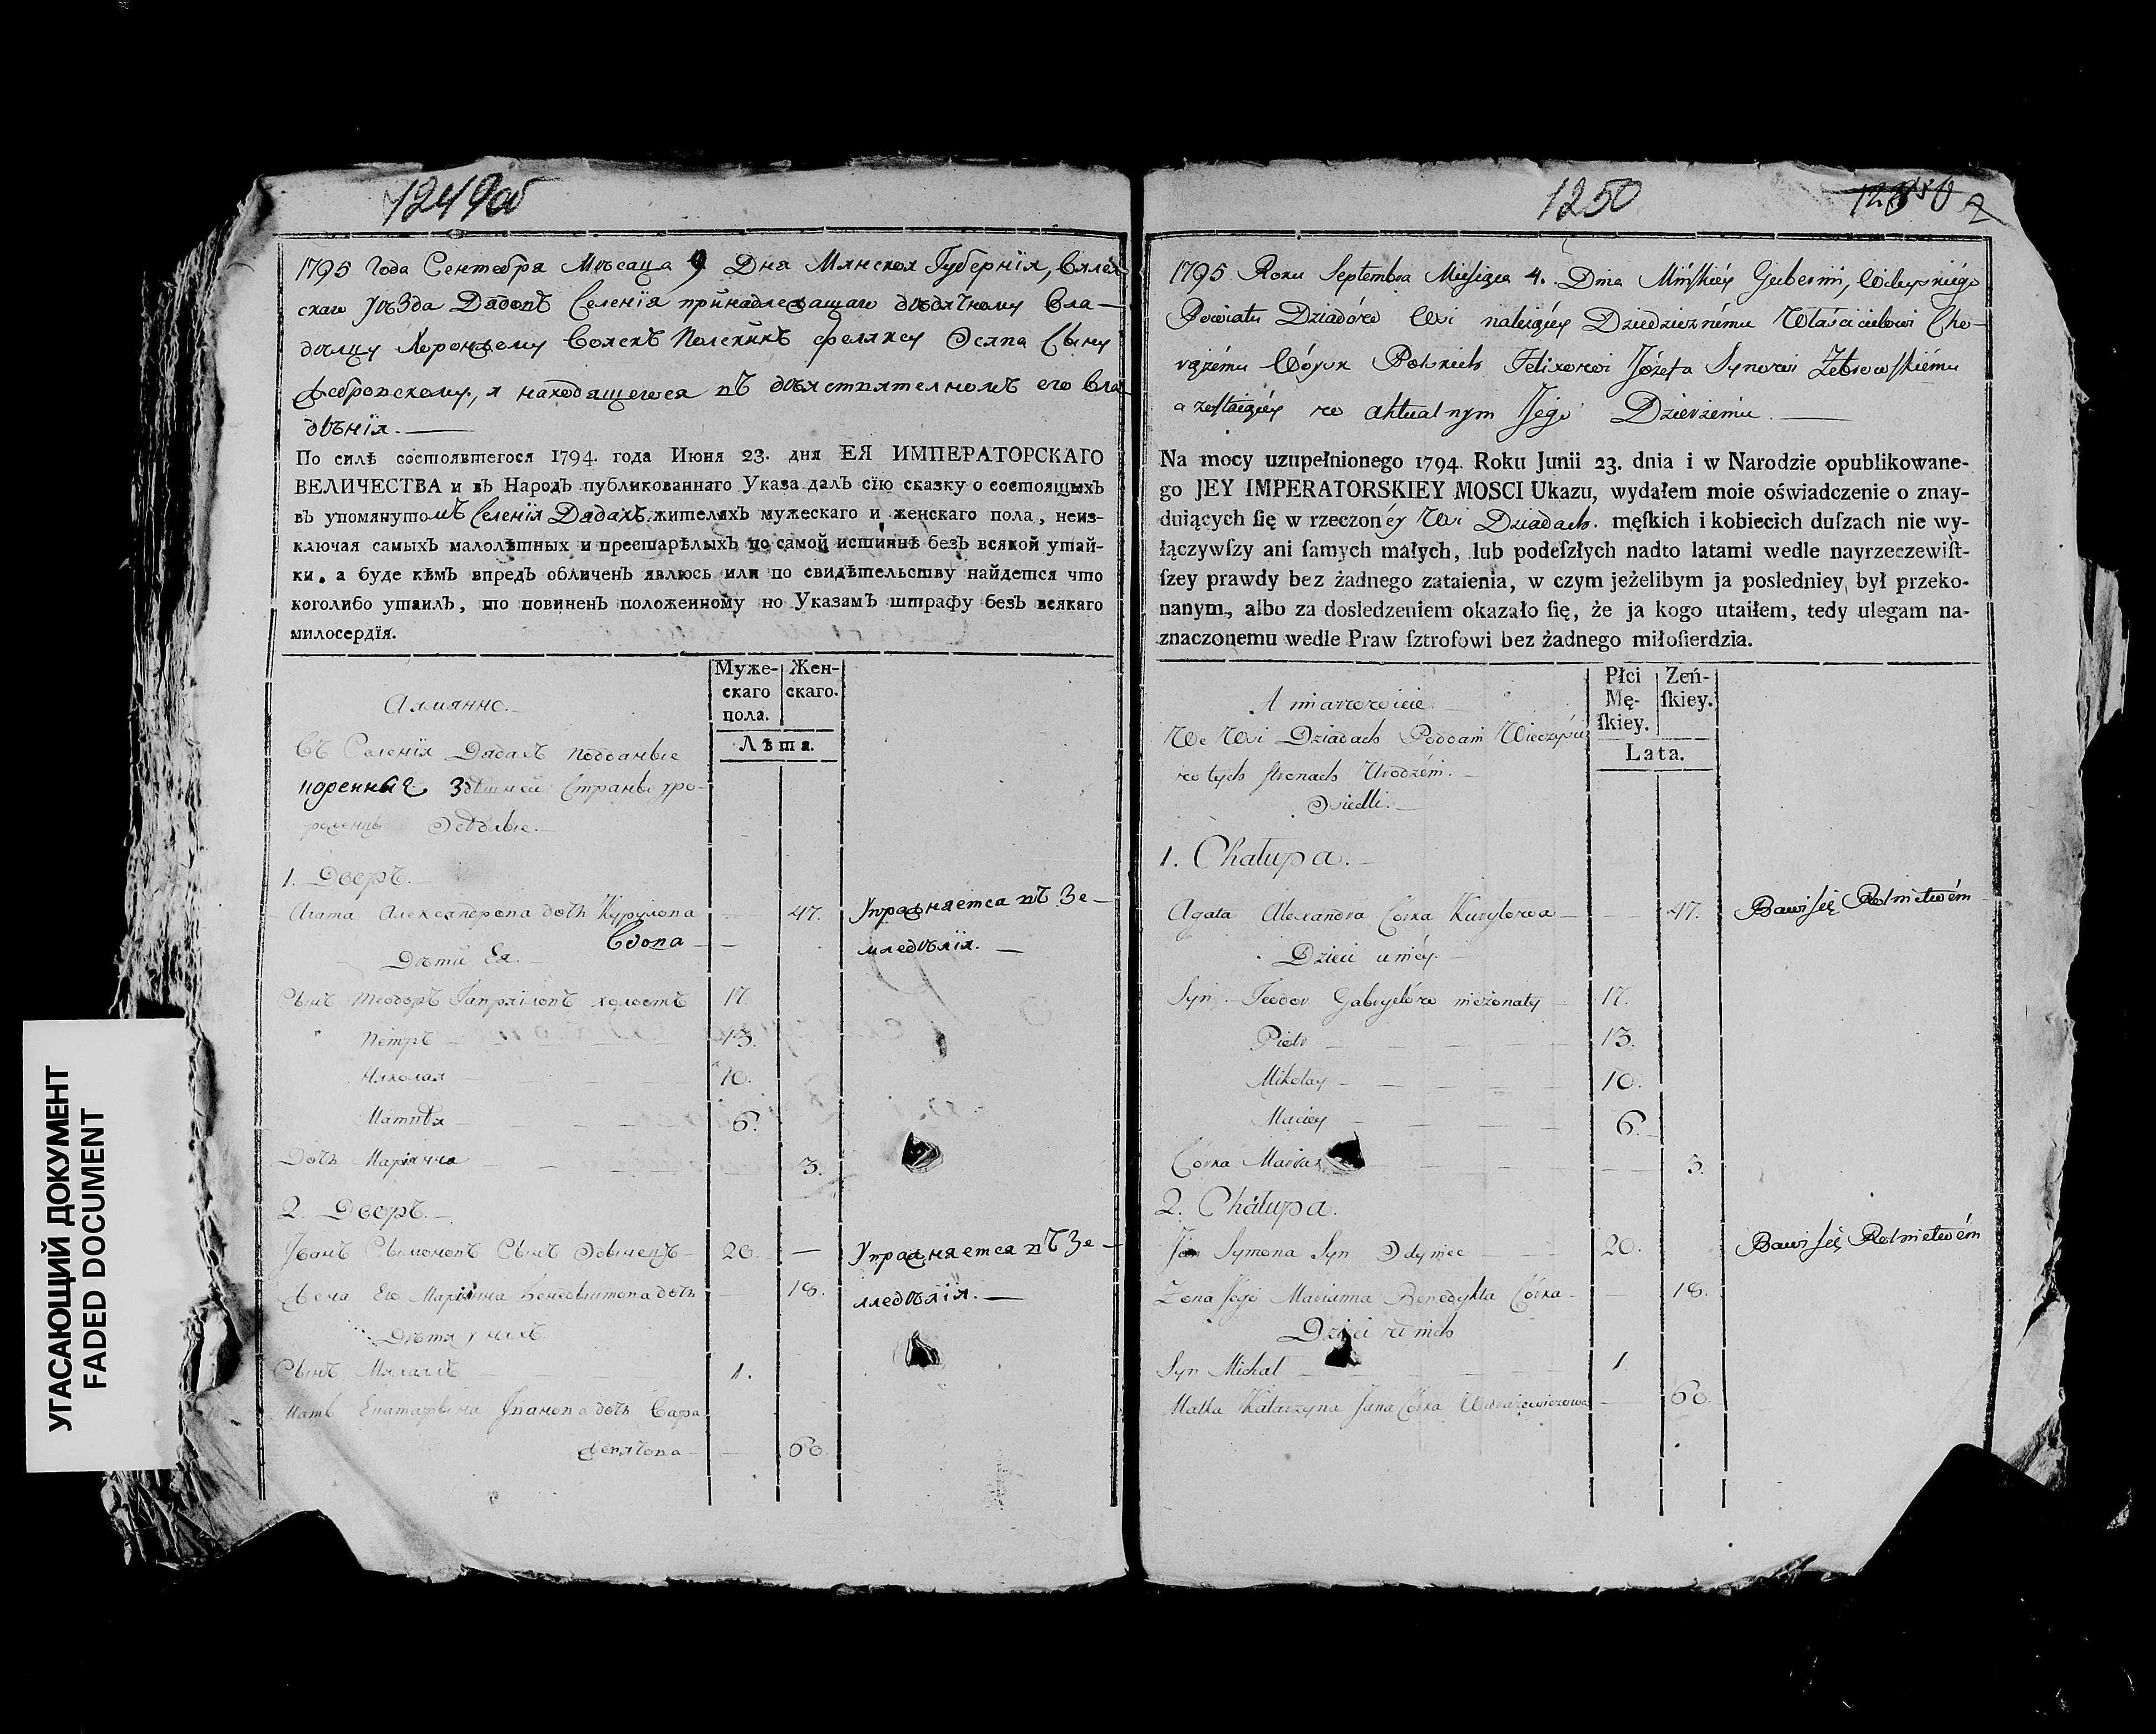 1249об
1795 года Сентебря Мѣсаца 9 Дня Мянская Губернїя, Вялей-
скаго уѣзда Дядопъ Селенїя принадлежащаго дѣдячному Вла-
дѣлцу Хоронжему Войскъ Полскихъ Феляксу Осипа Сыну
Жебропскому, я находящегося пъ дѣястпятелномъ его Вла
дѣнїя.
По силѣ состоявшегося 1794. года Июня 23. дня ЕЯ ИМПЕРАТОРСКАГО
ВЕЛИЧЕСТВА и въ Народъ публикованнаго Указа далъ сїю сказку о состоящыхъ
въ упомянутомъ Селенїя Дядахъ жителяхъ мужескаго и женскаго пола, неиз-
ключая самыхъ малолѣтныхъ и престарѣлыхъ по самой истиннѣ безъ всякой утай-
ки. а буде кѣмъ впредъ обличенъ явлюсь или по свидѣтельству найдется что
коголибо утаилъ, то повиненъ положенному по Указамъ штрафу безъ всякаго
милосердїя.
Муже-
скаго
пола.
Жен-
скаго.
Лѣта.
Алмянно.
Въ Селенїя Дядахъ поддакные
коренные Здѣшней Страны уро-
роженцы Осѣдлые.
1. Дворъ.
Агата Александрона дочь Курулона 47. Упражняется пъ Зе-
Вдопа
мледѣлїя.
Дѣти Ея.
Сынъ Теодоръ Гапрялопъ холостъ 17.
Петръ 13.
Николая 10.
Матпѣя 6.
Дочь Марїянна 3.
2. Дворъ.
Іванъ Сымонопъ Сынъ Одынецъ 20. Упражняется пъ Зе-
Жена Его Марїянна Бенедыктопа дочь 18. мледѣлїя.
Дѣтя у нихъ
Сынъ Мяхалъ 1.
Мать Екатарына Іпанопа дочь Вара
жепячопа 60
1250
2
1795 Roku Septembra Miesiąca 4. Dnia Mińſkiéy Gubernii, Wileyskiégo
Powiatu Dziadów Wsi należącéy Dziedzicznému Właścicielowi Cho-
rążému Wóysk Polskich Felixowi Józefa Synowi Żebrowſkiému
a zoſtaiącéy w aktualnym Jego Dzierżeniu.
Na mocy uzupełnionego 1794. Roku Junii 23. dnia i w Narodzie opublikowane-
go JEY IMPERATORSKIEY MOSCI Ukazu, wydałem moie oświadczenie o znay-
duiących ſię w rzeczonéy Wsi Dziadach. męſkich i kobiecich duſzach nie wy-
łączywſzy ani ſamych małych, lub podeſzłych nadto latami wedle nayrzeczewiſt-
ſzey prawdy bez żadnego zataienia, w czym jeżelibym ja posledniey był przeko-
nanym, albo za dosledzeniem okazało ſię, że ja kogo utaiłem, tedy ulegam na-
znaczonemu wedle Praw ſztrofowi bez żadnego miłoſierdzia.
Płci
Mę-
ſkiey.
Zeń-
ſkiey.
Lata.
A mianowicie
We Wsi Dziadach Poddani Wieczyści
w tych ſtronach Urodzéni.
Osiedli.
1. Chałupa.
Agata Alexandra Córka Kuryłowa 47. Bawi ſię Rolnictwém
Dzieci u niéy.
Syn Teodor Gabryelów nieżonaty 17.
Piotr 13.
Mikołay 10.
Maciey 6.
Córka Marian 3.
2. Chałupa.
Jan Symona Syn Odyniec 20. Bawi ſię Rolnictwém
Zona Jego Marianna Benedykta Córka 18.
Dzieci u nich
Syn Michał 1.
Matka Katarzyna Jana Córka 60.
УГАСАЮЩИЙ ДОКУМЕНТ
FADED DOCUMENT